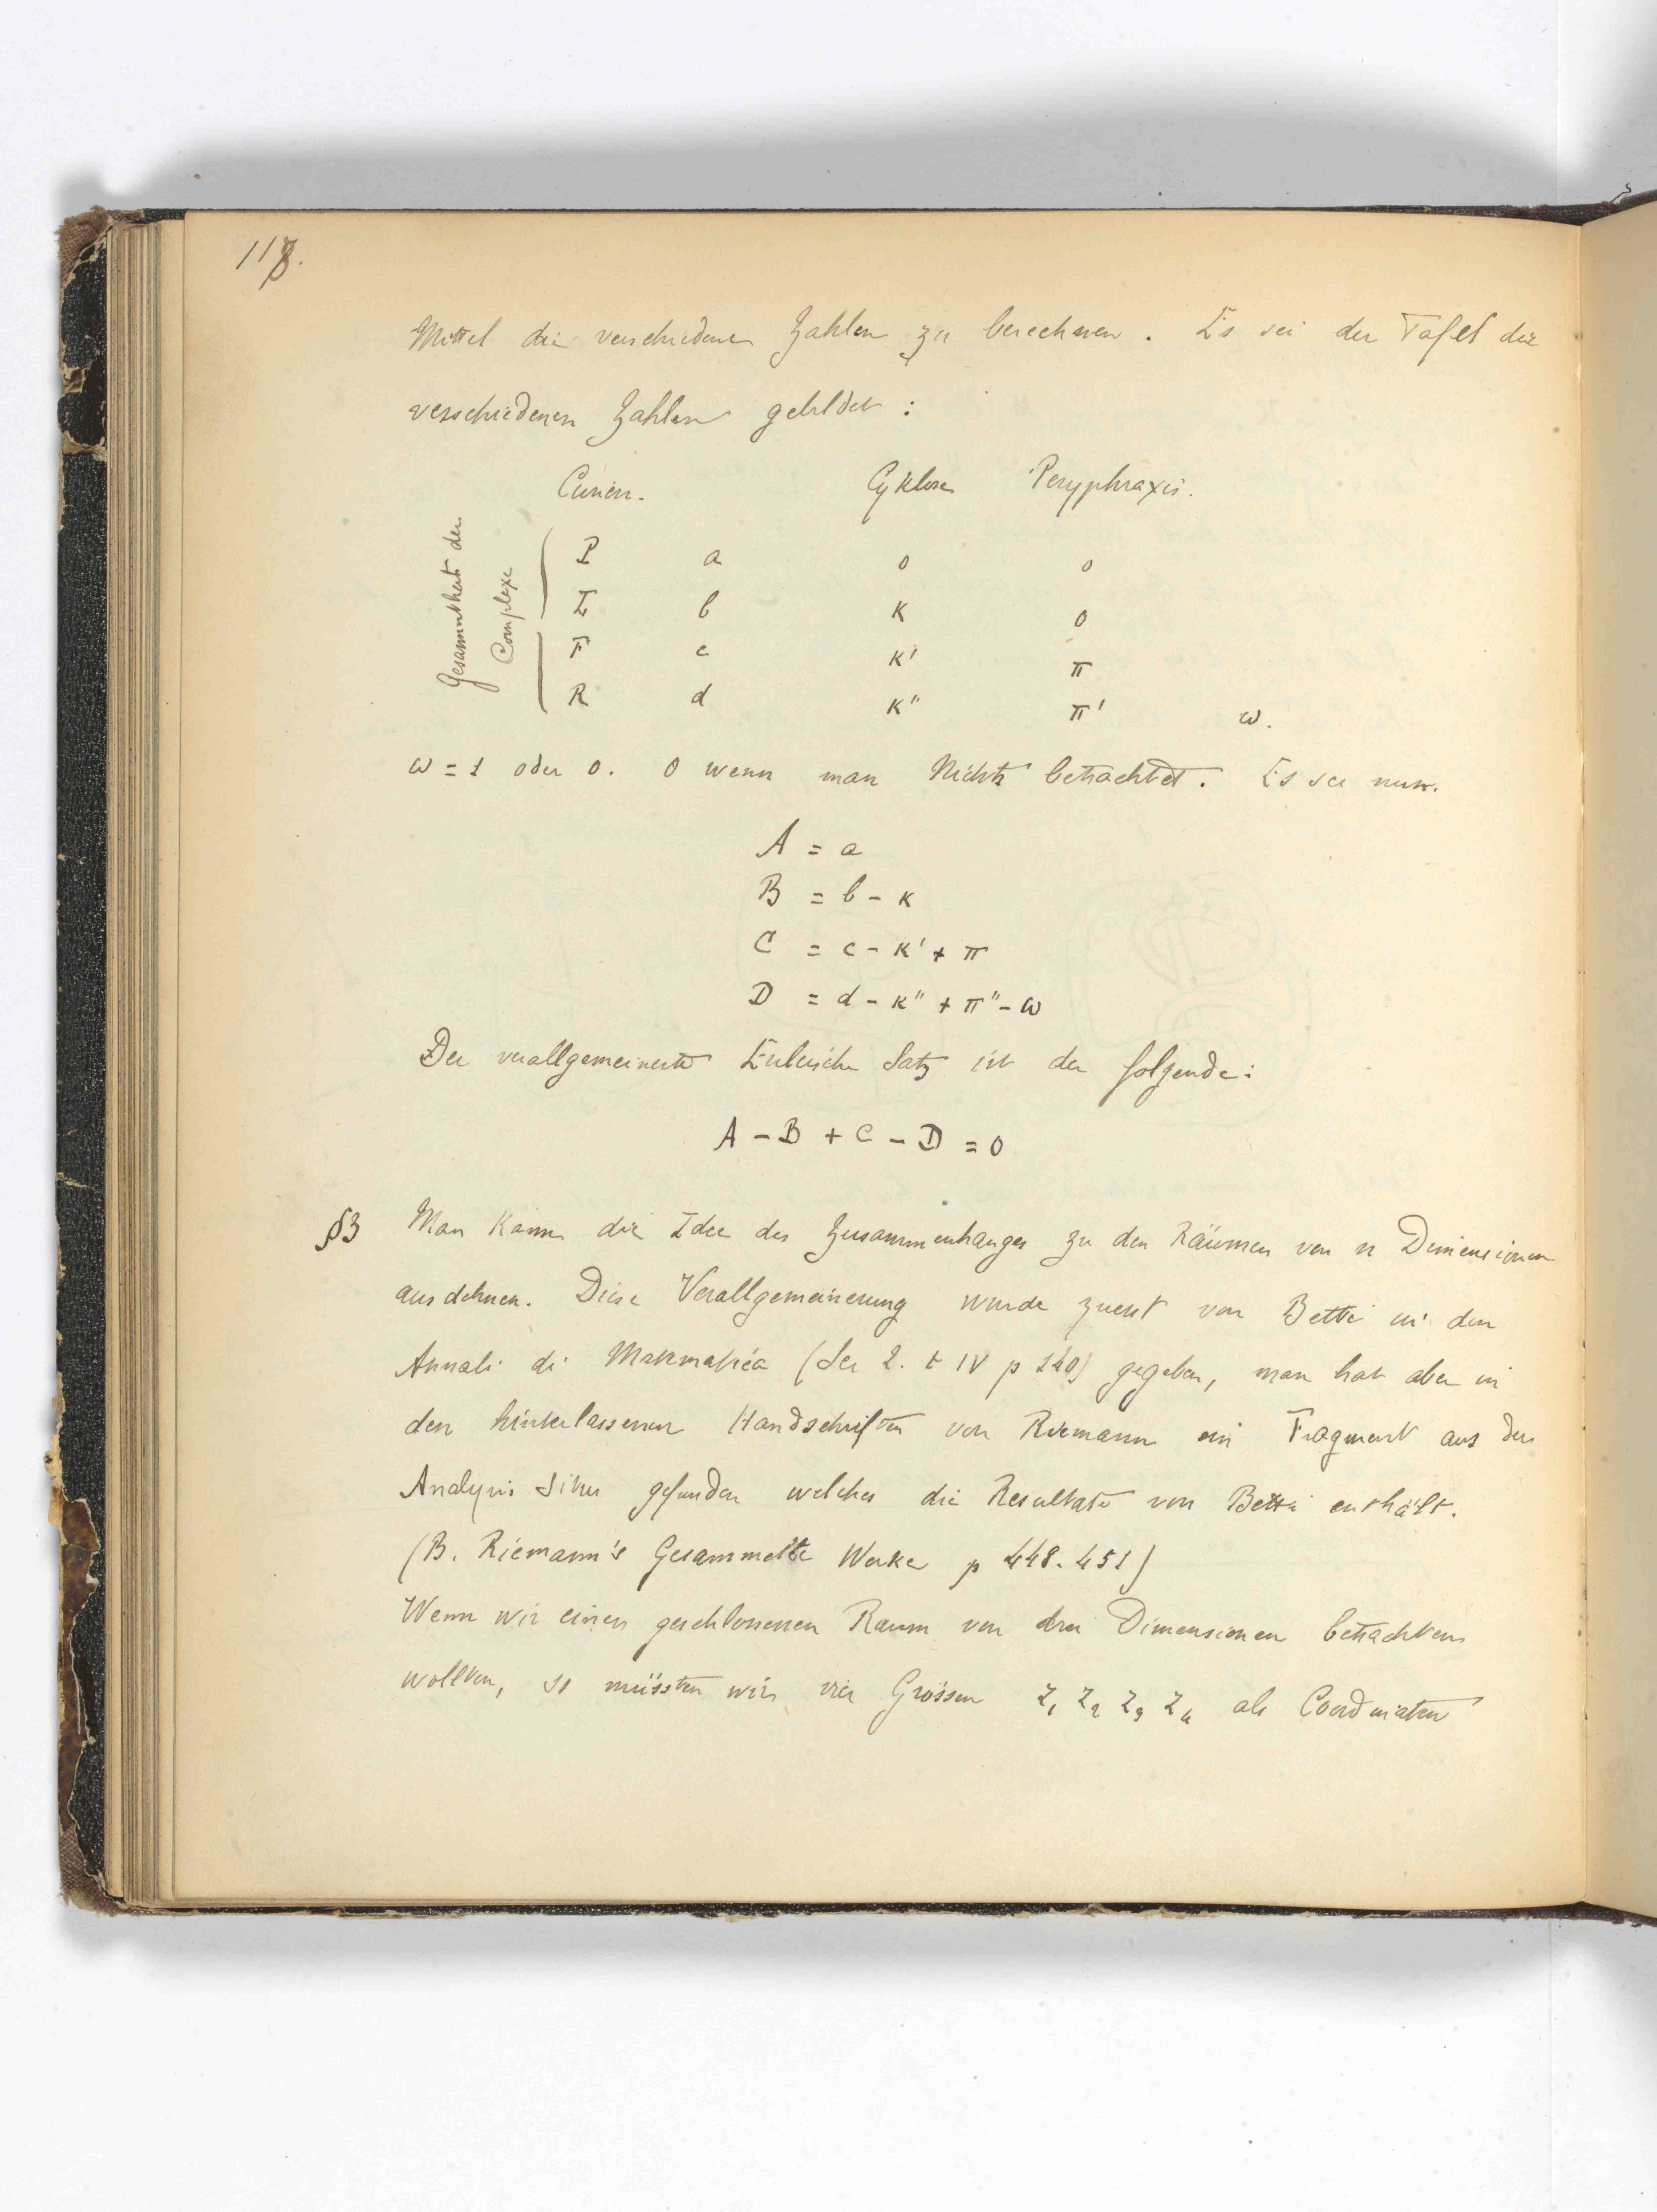 118.
Mittel die verschiedenen Zahlen zu berechnen. Es sei der Tafel der
verschiedenen Zahlen gebildet:
Curven. Cyklose Peryphraxis.
Gesammtheit der
Complexe
P a 0 0
L b K 0
F c K' π
R d K'' π' ω.
ω = 1 oder 0. 0 wenn man Nichts betrachtet. Es sei nun.
A = a
B = b - K
C = c - K' + π
D = d - K'' + π'' - ω
Der verallgemeinerte Eulersche Satz ist der folgende:
A - B + C - D = 0
§3 Man kann die Idee des Zusammenhanges zu den Räumen von n Dimensionen
ausdehnen. Diese Verallgemeinerung wurde zuerst von Betti in den
Annali di Matematica (Ser 2. t IV p 140) gegeben, man hat aber in
den hinterlassenen Handschriften von Riemann ein Fragment aus der
Analysis Situs gefunden welches die Resultate von Betti enthält.
(B. Riemann's Gesammelte Werke p 448-451)
Wenn wir einen geschlossenen Raum von drei Dimensionen betrachten
wollten, so müssten wir vier Grössen z₁ z₂ z₃ z₄ als Coordinaten